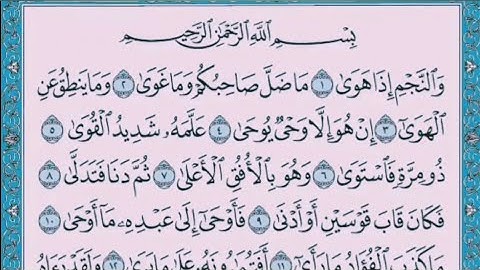 بِسْمِ اللَّهِ الرَّحْمَٰنِ الرَّحِيمِ
وَالنَّجْمِ إِذَا هَوَىٰ ١ مَا ضَلَّ صَاحِبُكُمْ وَمَا غَوَىٰ ٢ وَمَا يَنطِقُ عَنِ
الْهَوَىٰ ٣ إِنْ هُوَ إِلَّا وَحْيٌ يُوحَىٰ ٤ عَلَّمَهُ شَدِيدُ الْقُوَىٰ ٥
ذُو مِرَّةٍ فَاسْتَوَىٰ ٦ وَهُوَ بِالْأُفُقِ الْأَعْلَىٰ ٧ ثُمَّ دَنَا فَتَدَلَّىٰ ٨
فَكَانَ قَابَ قَوْسَيْنِ أَوْ أَدْنَىٰ ٩ فَأَوْحَىٰ إِلَىٰ عَبْدِهِ مَا أَوْحَىٰ ١٠
مَا كَذَبَ الْفُؤَادُ مَا رَأَىٰ ١١ أَفَتُمَارُونَهُ عَلَىٰ مَا يَرَىٰ ١٢ وَلَقَدْ رَءَاهُ